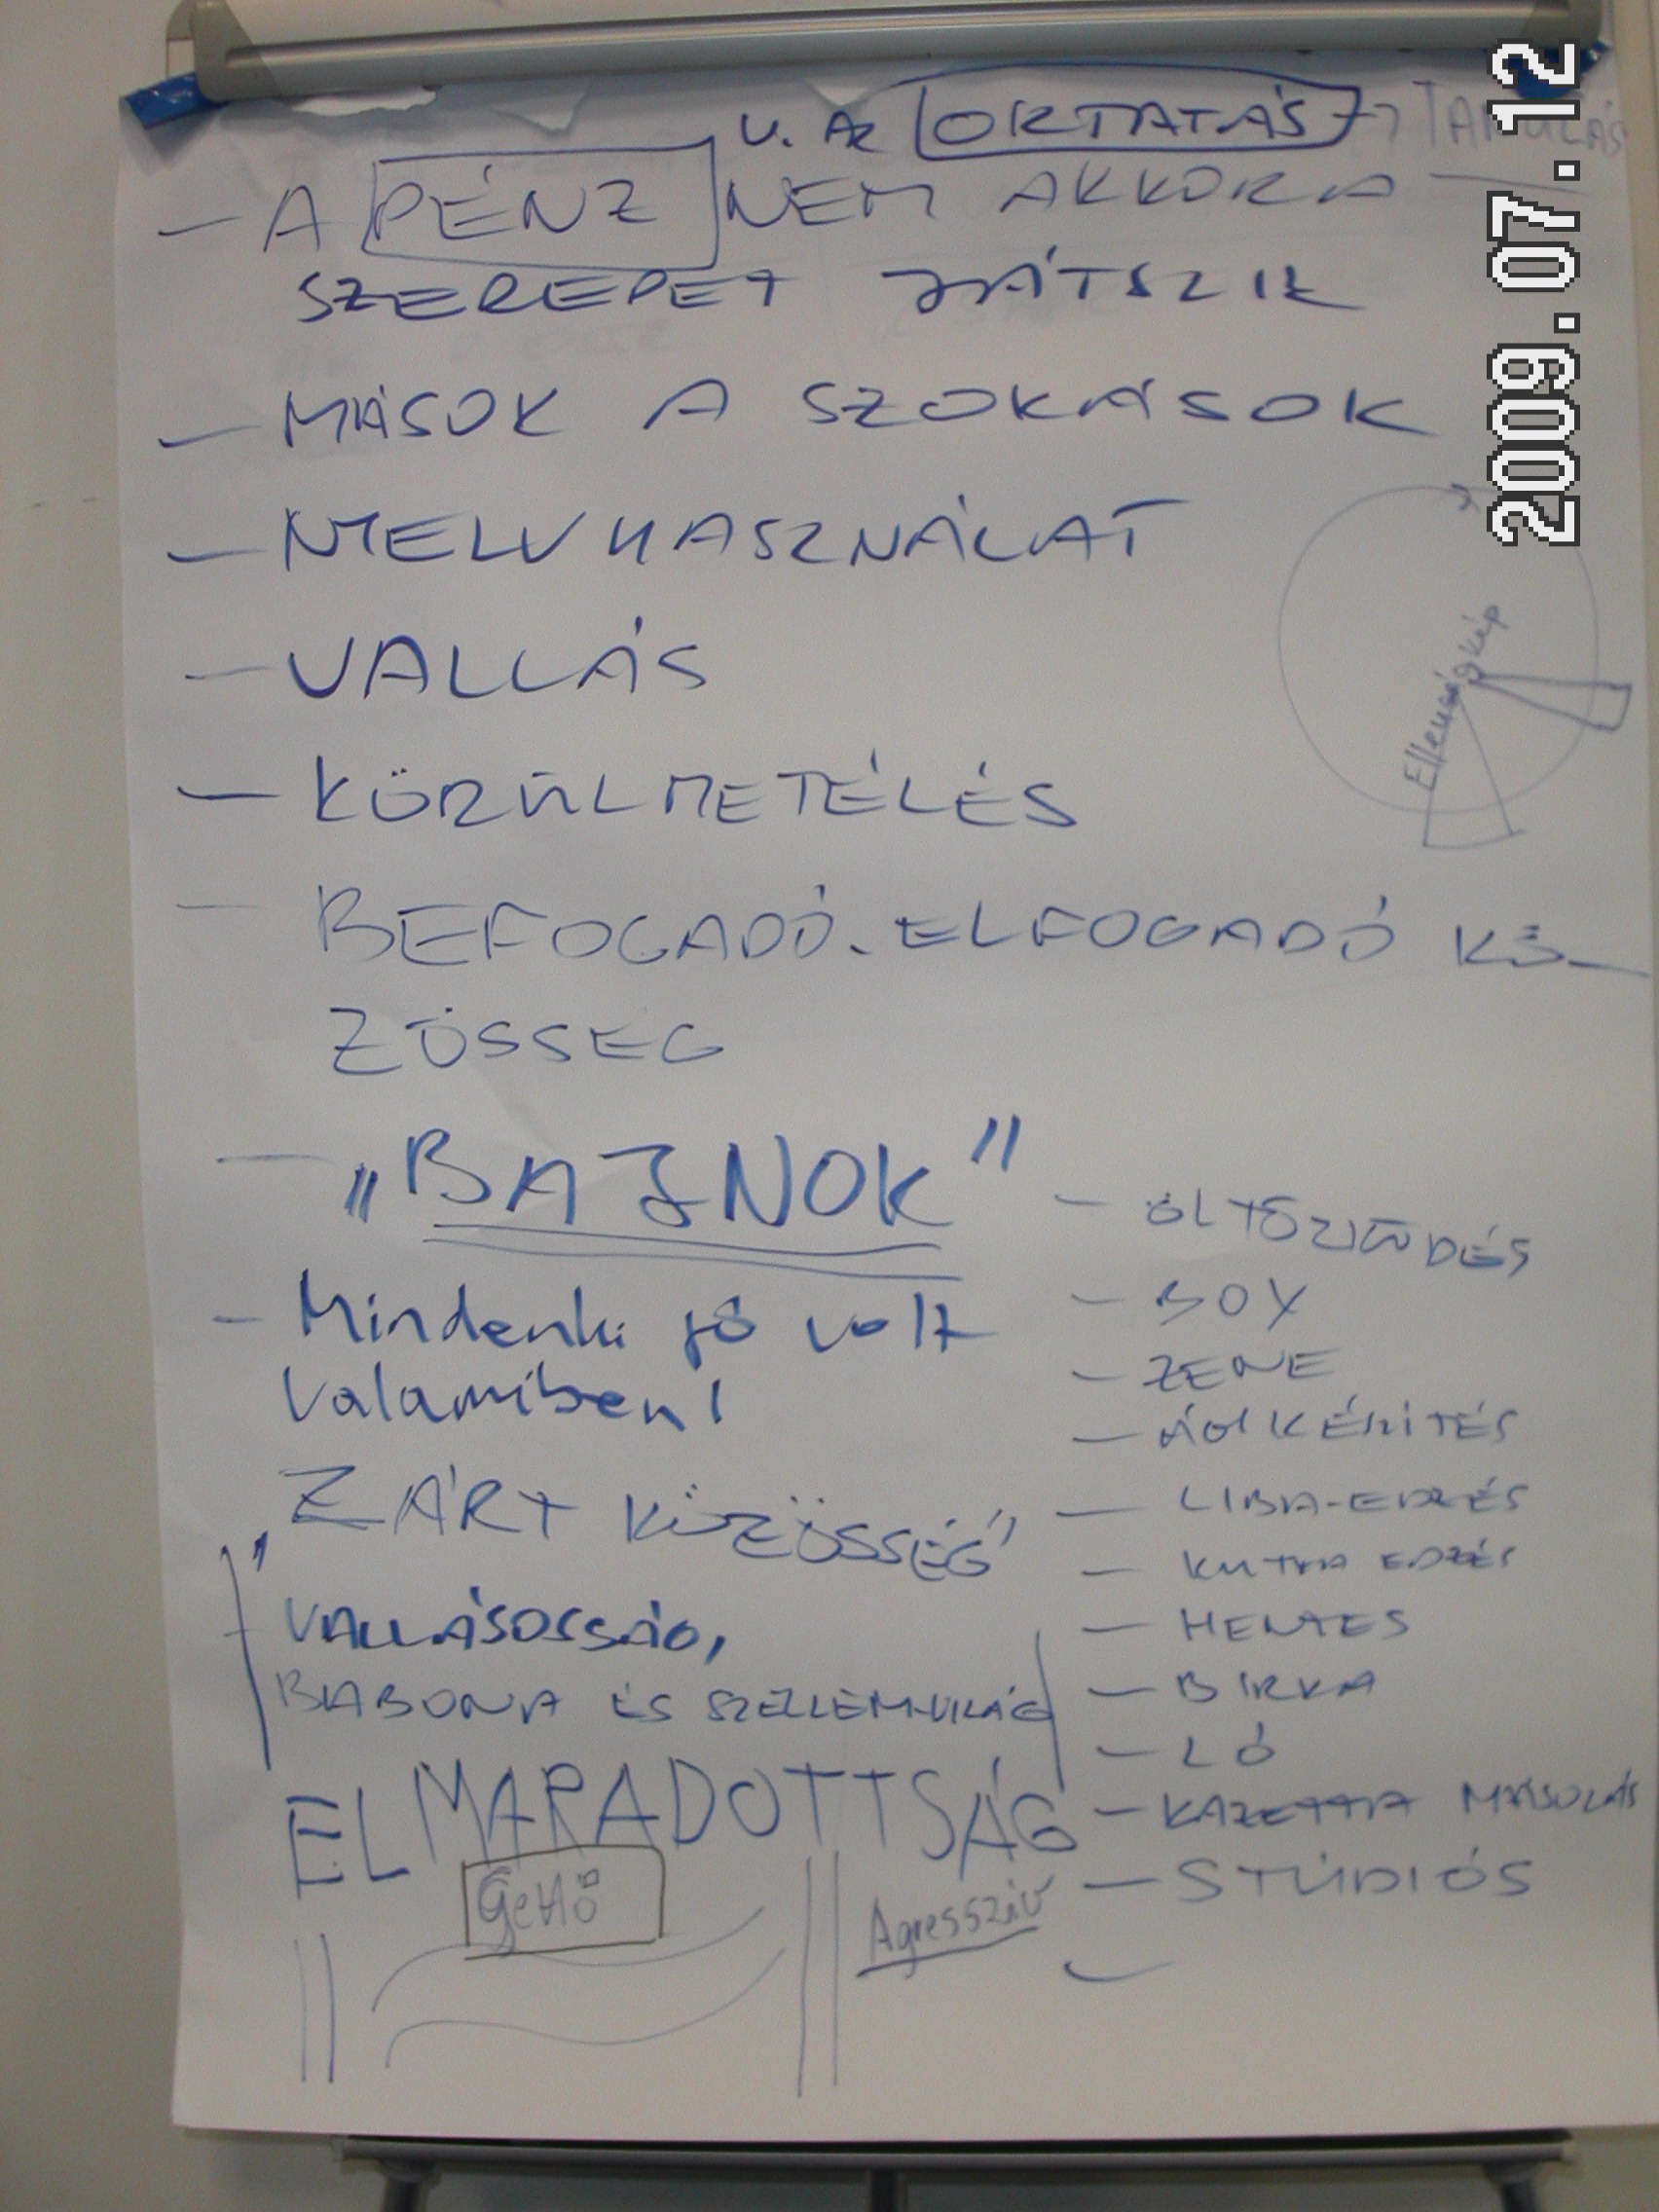 V. AZ OKTATÁS → TANULÁS
- A PÉNZ NEM AKKORA
SZEREPET JÁTSZIK
- MÁSOK A SZOKÁSOK
- NYELVHASZNÁLAT
- VALLÁS
- KÖRÜLMETÉLÉS
- BEFOGADÓ-ELFOGADÓ KÖ-
ZÖSSÉG
- „BAJNOK"
- Mindenki jó volt
valamiben!
„ZÁRT KÖZÖSSÉG"
VALLÁSOSSÁG,
BABONA ÉS SZELLEM-VILÁG
ELMARADOTTSÁG
Gettó
Agresszív
- ÖLTÖZKÖDÉS
- BOX
- ZENE
- LIBA-EDZÉS
- KUTYA EDZÉS
- HENTES
- BIRKA
- LÓ
- KAZETTA MÁSOLÁS
- STÚDIÓS
Ellenségkép
2009.07.12